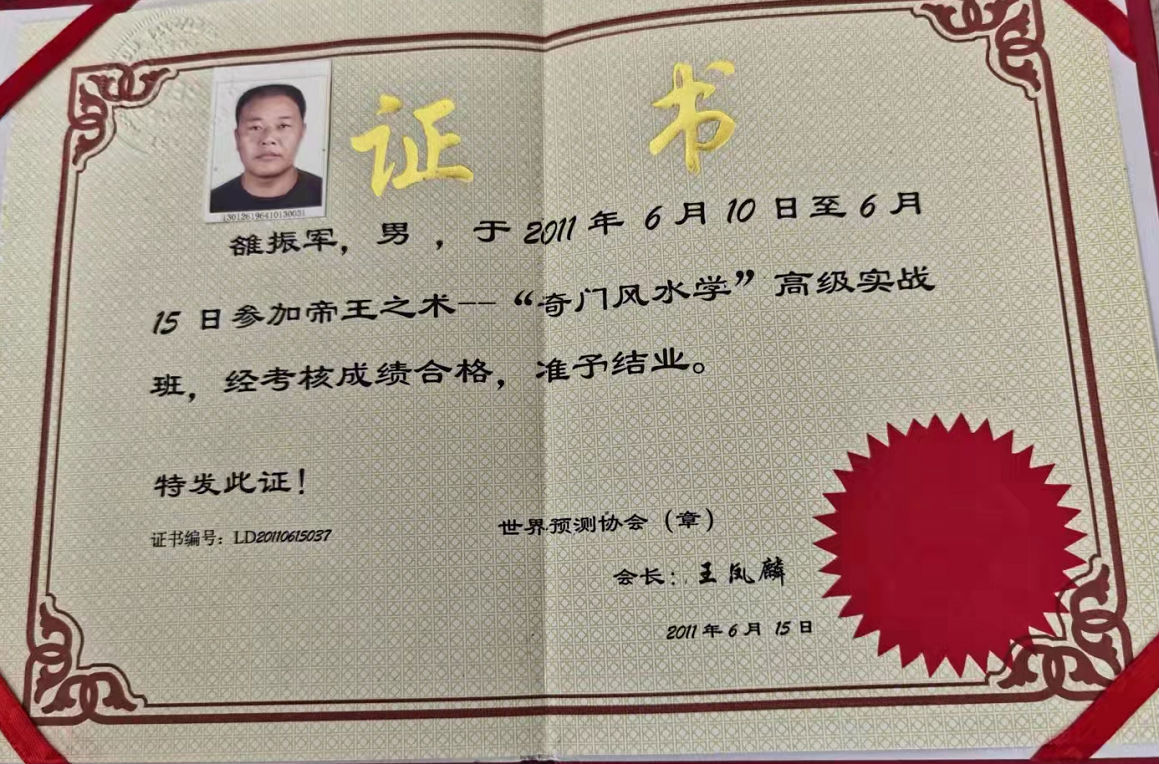 证 书
130126196410130031
雒振军，男 ，于 2011 年 6 月 10 日至 6 月
15 日参加帝王之术--“奇门风水学”高级实战
班，经考核成绩合格，准予结业。
特发此证！
证书编号：LD20110615037
世界预测协会（章）
会长：王凤麟
2011 年 6 月 15 日